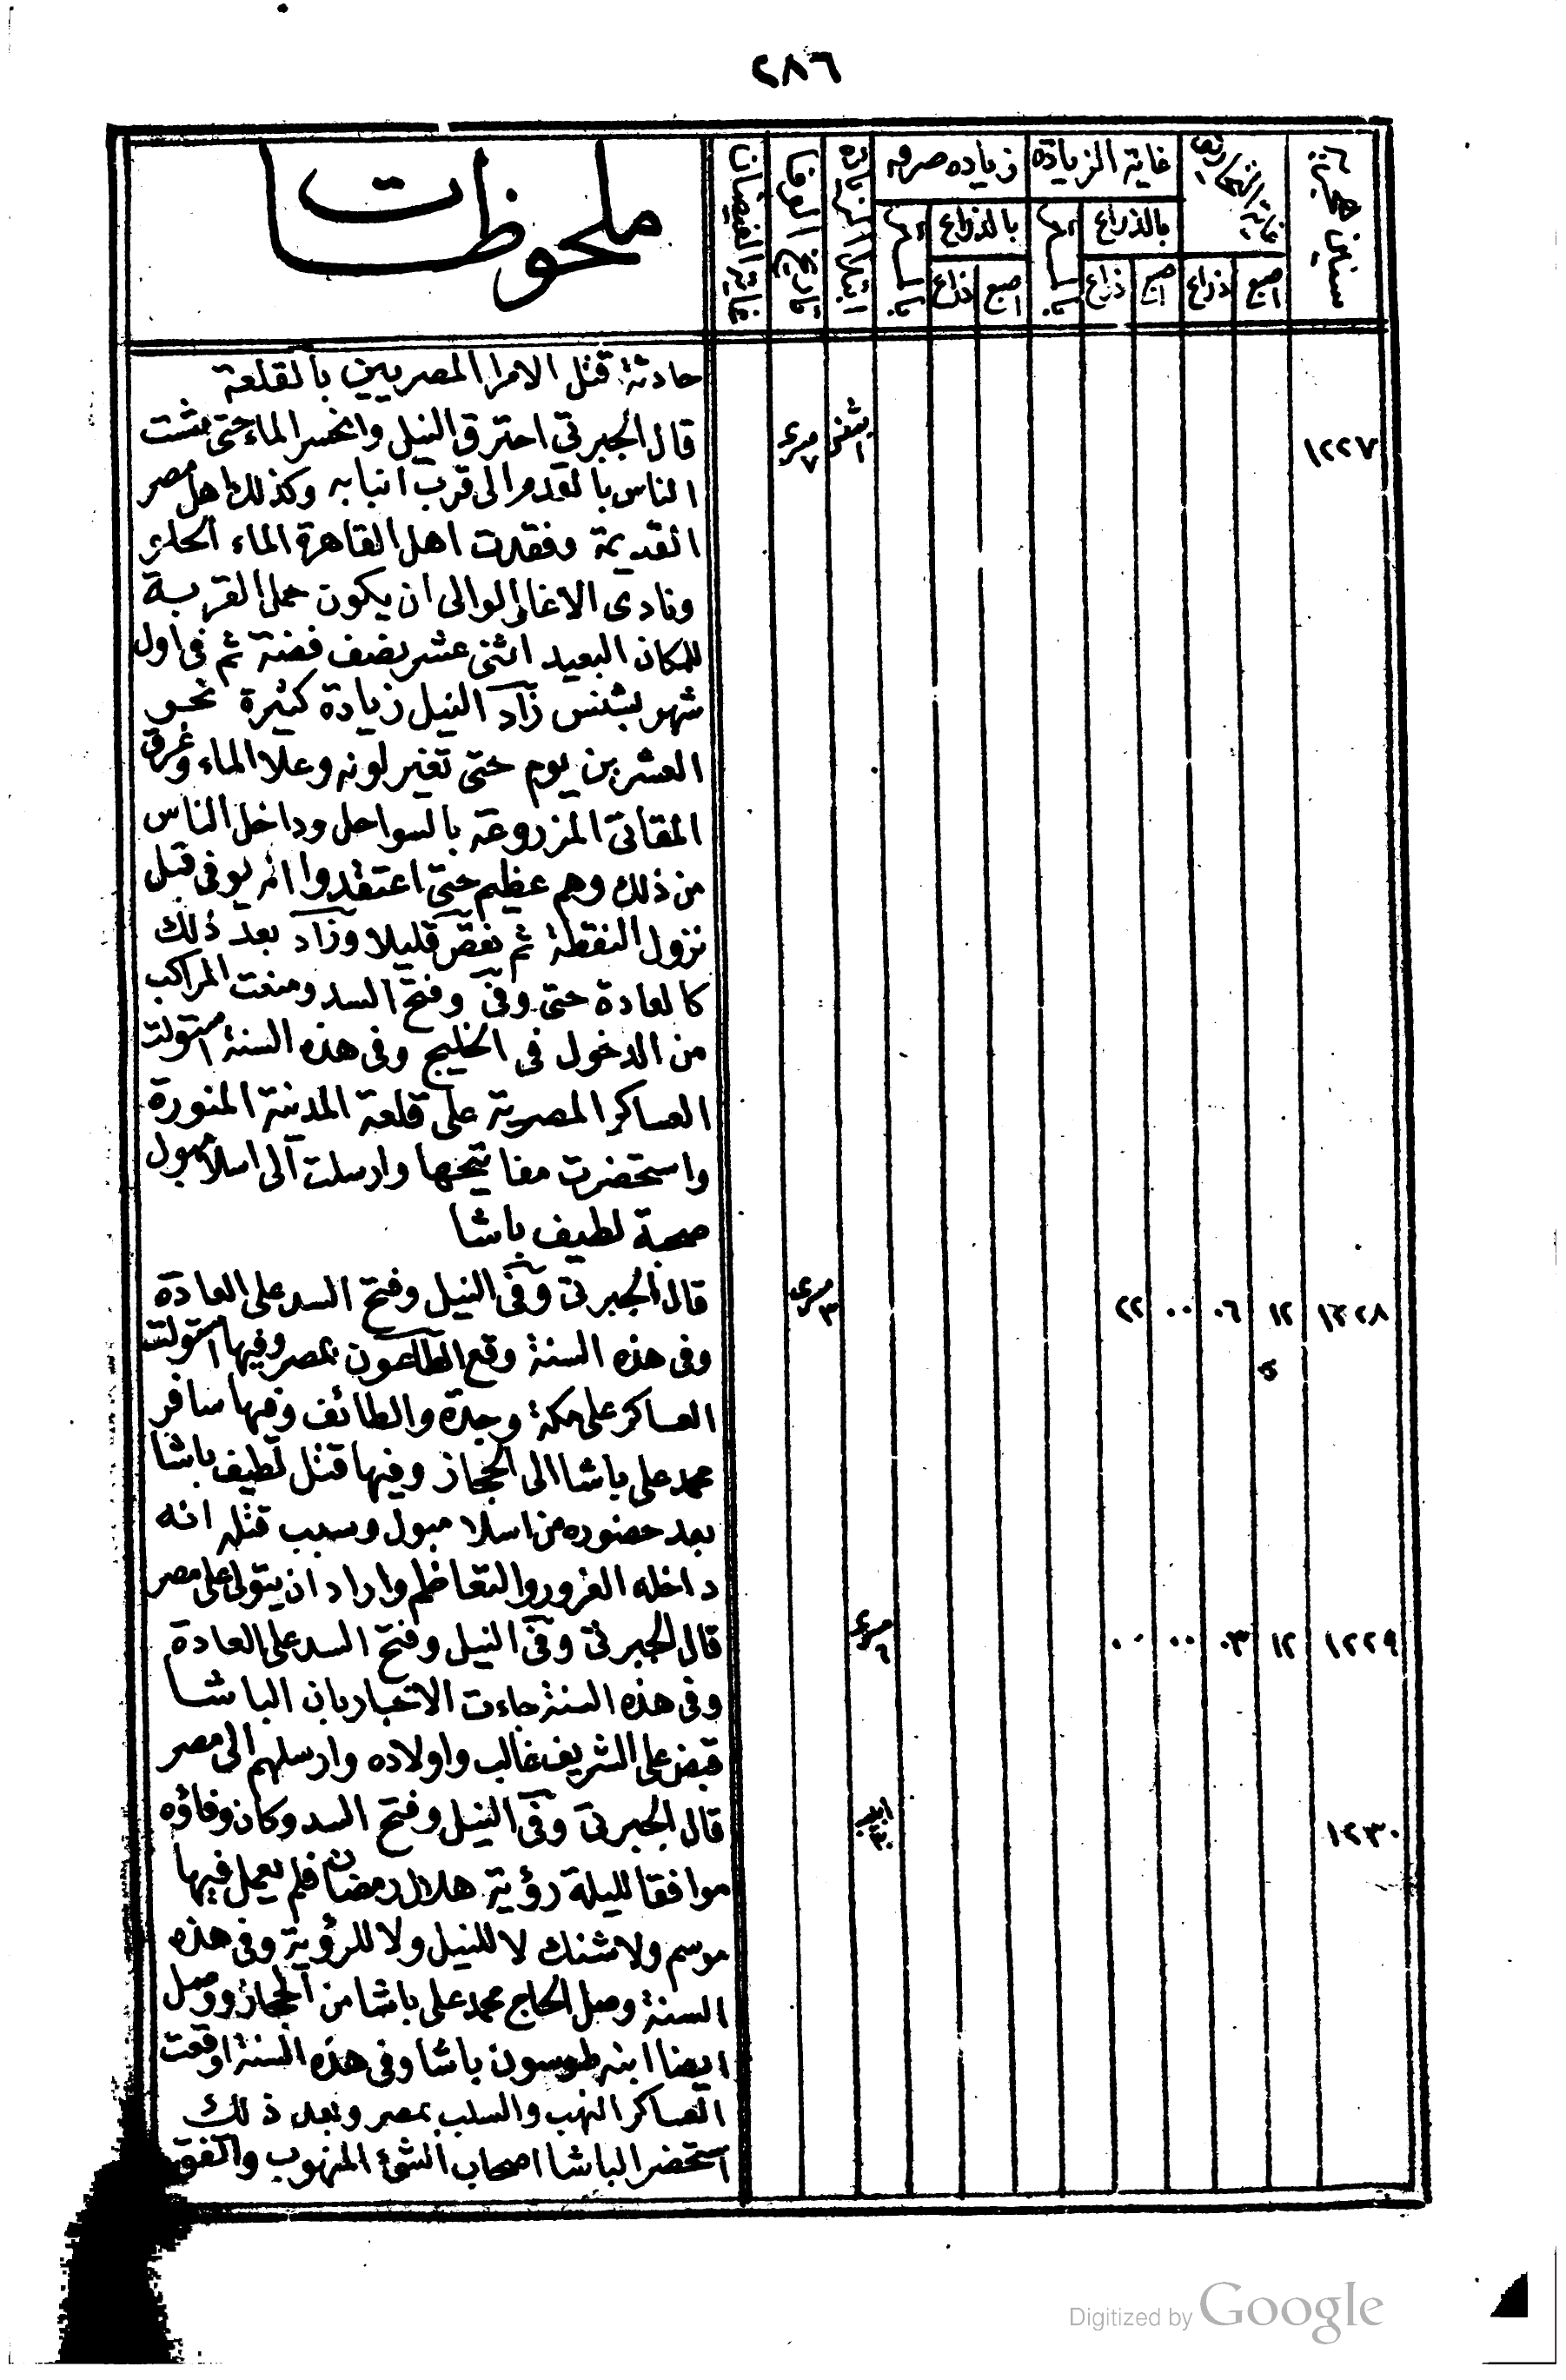 ٢٨٦
سنين هجرية
غاية التحاريق
غاية الزيادة
زياده صرفه
ابتدا الزياده
تاريخ الوفا
غاية الفيضان
ملحوظات
بالذراع
بالذراع
اصبع
ذراع
اصبع
ذراع
اصبع
ذراع
حادثة قتل الامرا المصريين بالقلعة
١٢٢٧
مسرى ٧
قال الجبرتى احترق النيل وانحسر الماء حتى مشت
الناس بالقدم الى قرب انبابه وكذلك اهل مصر
القديمة وفقدت اهل القاهرة الماء الحلو
ونادى الاغا والوالى ان يكون حمل القربة
للمكان البعيد اثنى عشر نصف فضة ثم فى اول
شهر بشنس زاد النيل زيادة كثيرة نحو
العشرين يوم حتى تغير لونه وعلا الماء وغرق
المقاتى المزروعة بالسواحل وداخل الناس
من ذلك وهم عظيم حتى اعتقدوا انه يوفى قبل
نزول النقطة ثم نقص قليلا وزاد بعد ذلك
كالعادة حتى وفى وفتح السد ومنعت المراكب
من الدخول فى الخليج وفى هذه السنة استولت
العساكر المصرية على قلعة المدينة المنورة
واستحضرت مفاتيحها وارسلت الى اسلامبول
صحبة لطيف باشا
١٢٢٨
١٢
٠٦
٠٠
٢٢
مسرى ٣
قال الجبرتى وفى النيل وفتح السد على العادة
وفى هذه السنة وقع الطاعون بمصر وفيها استولت
العساكر على مكة وجدة والطائف وفيها سافر
محمد على باشا الى الحجاز وفيها قتل لطيف باشا
بعد حضوره من اسلامبول وسبب قتله انه
داخله الغرور والتعاظم واراد ان يتولى على مصر
١٢٢٩
١٢
٠٣
٠٠
٠٠
مسرى ٦
قال الجبرتى وفى النيل وفتح السد على العادة
وفى هذه السنة جاءت الاخبار بان الباشا
قبض على الشريف غالب واولاده وارسلهم الى مصر
١٢٣٠
ابيب ٣٠
قال الجبرتى وفى النيل وفتح السد وكان وفاؤه
موافقا لليلة رؤية هلال رمضان فلم يعمل فيها
موسم ولا شنك لا للنيل ولا للرؤية وفى هذه
السنة وصل الحاج محمد على باشا من الحجاز ووصل
ايضا ابنه طوسون باشا وفى هذه السنة اوقعت
العساكر النهب والسلب بمصر وبعد ذلك
استحضر الباشا اصحاب الشئ المنهوب واتفق
Digitized by Google